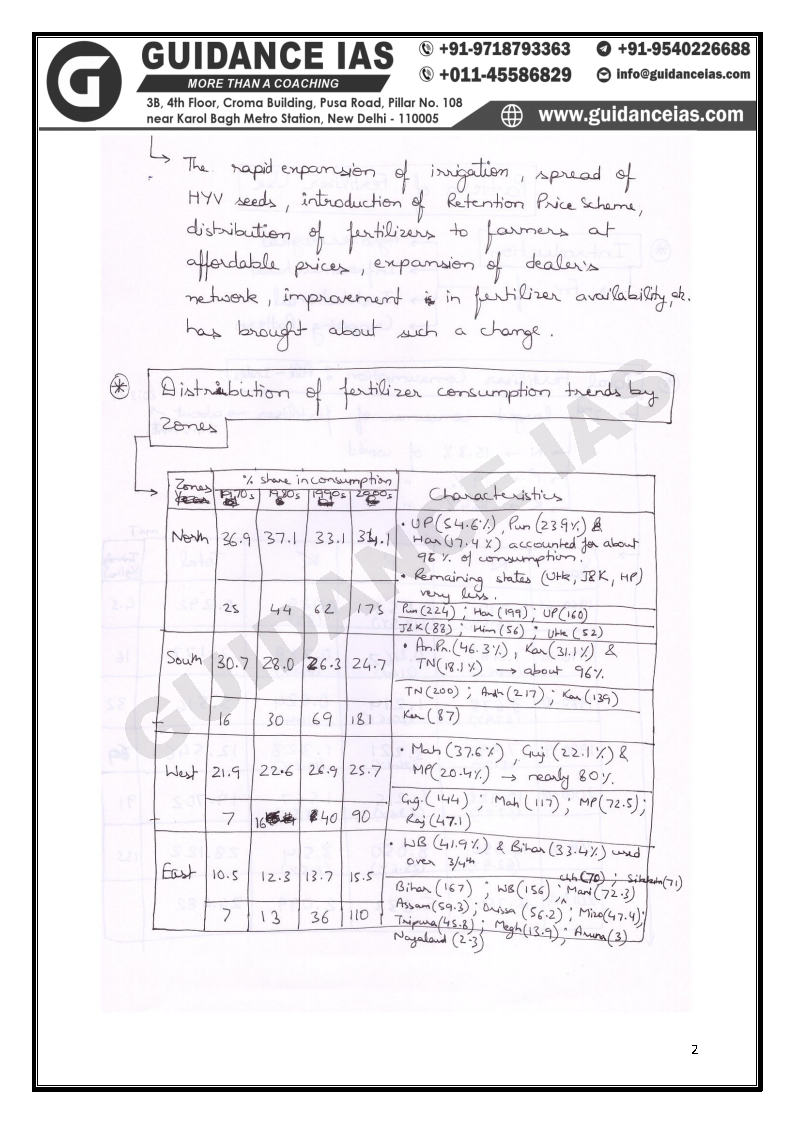 GUIDANCE IAS
MORE THAN A COACHING
+91-9718793363
+91-9540226688
+011-45586829
info@guidanceias.com
3B, 4th Floor, Croma Building, Pusa Road, Pillar No. 108
near Karol Bagh Metro Station, New Delhi - 110005
www.guidanceias.com
The rapid expansion of irrigation, spread of
HYV seeds, introduction of Retention Price Scheme,
distribution of fertilizers to farmers at
affordable prices, expansion of dealer's
network, improvement in fertilizer availability, etc.
has brought about such a change.
Distribution of fertilizer consumption trends by
Zones
Zones % share in consumption Characteristics
1970s 1980s 1990s 2000s
North 36.9 37.1 33.1 34.1
• UP(54.6%), Pun(23.9%) &
Har(17.4%) accounted for about
96% of consumption.
• Remaining states (Utk, J&K, HP)
very less.
25 44 62 175
Pun(224); Har(199); UP(160)
J&K(88); Him(56); Utk(52)
South 30.7 28.0 26.3 24.7
• An.Pr.(46.3%), Kar(31.1%) &
TN(18.1%) → about 96%.
16 30 69 181
TN(200); Andh(217); Kar(139)
Ker(87)
West 21.9 22.6 26.9 25.7
• Mah(37.6%), Guj(22.1%) &
MP(20.4%) → nearly 80%.
7 16 40 90
Guj(144); Mah(117); MP(72.5);
Raj(47.1)
East 10.5 12.3 13.7 15.5
• WB(41.9%) & Bihar(33.4%) used
over 3/4th
7 13 36 110
(70); Sikkim(71)
Bihar(167); WB(156); Mani(72.3)
Assam(59.3); Orissa(56.2); Mizo(47.4);
Tripura(45.8); Megh(13.9); Aruna(3)
Nagaland(2.3)
GUIDANCE IAS
2